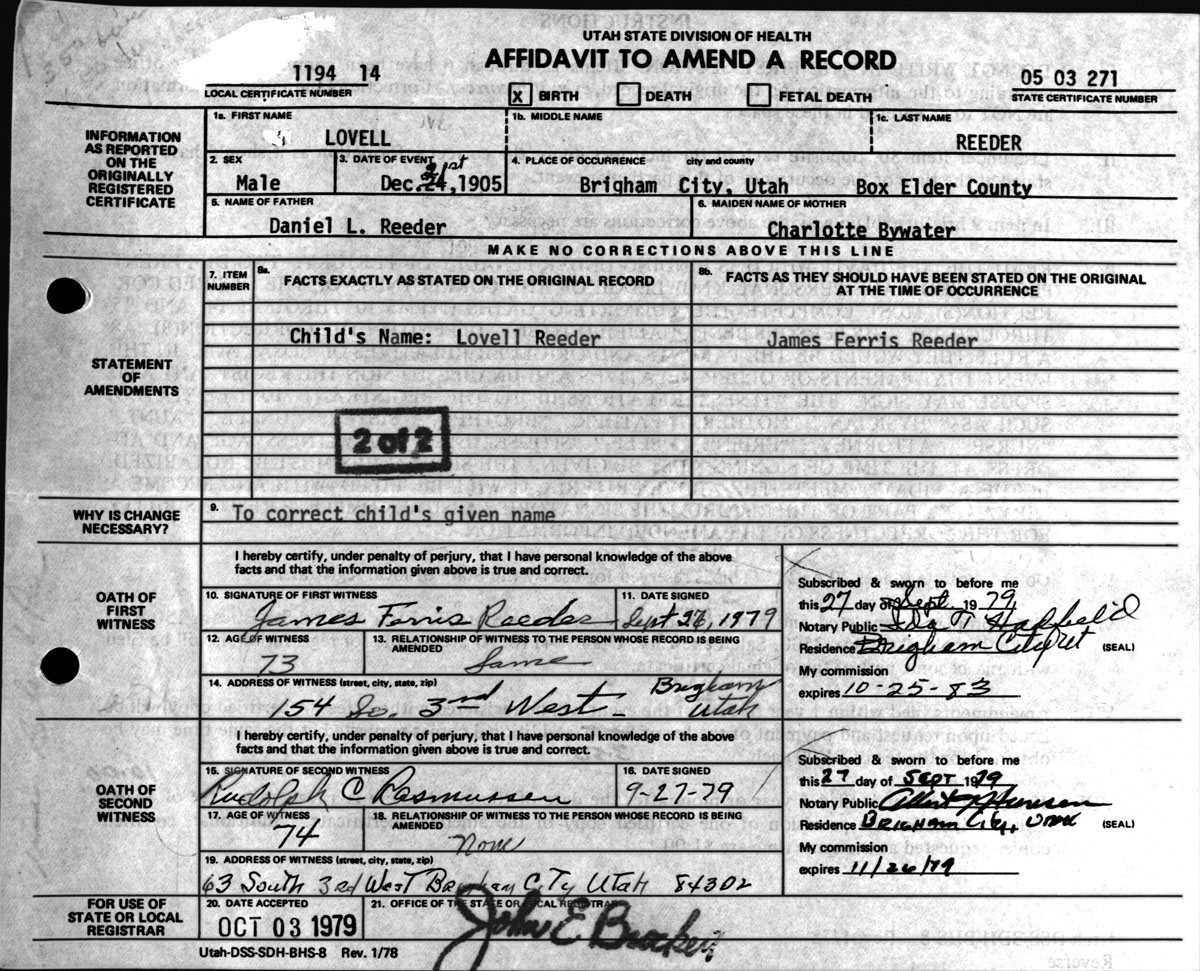 UTAH STATE DIVISION OF HEALTH
AFFIDAVIT TO AMEND A RECORD
1194 14
LOCAL CERTIFICATE NUMBER
X BIRTH DEATH FETAL DEATH
05 03 271
STATE CERTIFICATE NUMBER
INFORMATION AS REPORTED ON THE ORIGINALLY REGISTERED CERTIFICATE
1a. FIRST NAME 1b. MIDDLE NAME 1c. LAST NAME
LOVELL REEDER
2. SEX 3. DATE OF EVENT 4. PLACE OF OCCURRENCE city and county
Male Dec. 24, 1905 Brigham City, Utah Box Elder County
5. NAME OF FATHER 6. MAIDEN NAME OF MOTHER
Daniel L. Reeder Charlotte Bywater
MAKE NO CORRECTIONS ABOVE THIS LINE
STATEMENT OF AMENDMENTS
7. ITEM NUMBER
8a. FACTS EXACTLY AS STATED ON THE ORIGINAL RECORD
8b. FACTS AS THEY SHOULD HAVE BEEN STATED ON THE ORIGINAL
AT THE TIME OF OCCURRENCE
Child's Name: Lovell Reeder James Ferris Reeder
2 of 2
WHY IS CHANGE NECESSARY?
9. To correct child's given name
OATH OF FIRST WITNESS
I hereby certify, under penalty of perjury, that I have personal knowledge of the above
facts and that the information given above is true and correct.
10. SIGNATURE OF FIRST WITNESS 11. DATE SIGNED
James Ferris Reeder Sept 27, 1979
12. AGE OF WITNESS 13. RELATIONSHIP OF WITNESS TO THE PERSON WHOSE RECORD IS BEING AMENDED
73 Same
14. ADDRESS OF WITNESS (street, city, state, zip)
154 So. 3rd West - Brigham Utah
Subscribed & sworn to before me
this 27 day of Sept. 1979
Notary Public Ida T
Residence Brigham City Ut (SEAL)
My commission
expires 10-25-83
OATH OF SECOND WITNESS
I hereby certify, under penalty of perjury, that I have personal knowledge of the above
facts and that the information given above is true and correct.
15. SIGNATURE OF SECOND WITNESS 16. DATE SIGNED
Rudolph C Rasmussen 9-27-79
17. AGE OF WITNESS 18. RELATIONSHIP OF WITNESS TO THE PERSON WHOSE RECORD IS BEING AMENDED
74 None
19. ADDRESS OF WITNESS (street, city, state, zip)
63 South 3rd West Brigham City Utah 84302
Subscribed & sworn to before me
this 27 day of SEPT 1979
Notary Public
Residence BRIGHAM CITY, UTAH (SEAL)
My commission
expires 11/26/79
FOR USE OF STATE OR LOCAL REGISTRAR
20. DATE ACCEPTED 21. OFFICE OF THE STATE OR LOCAL REGISTRAR
OCT 03 1979 John E Brockert
Utah-DSS-SDH-BHS-8 Rev. 1/78